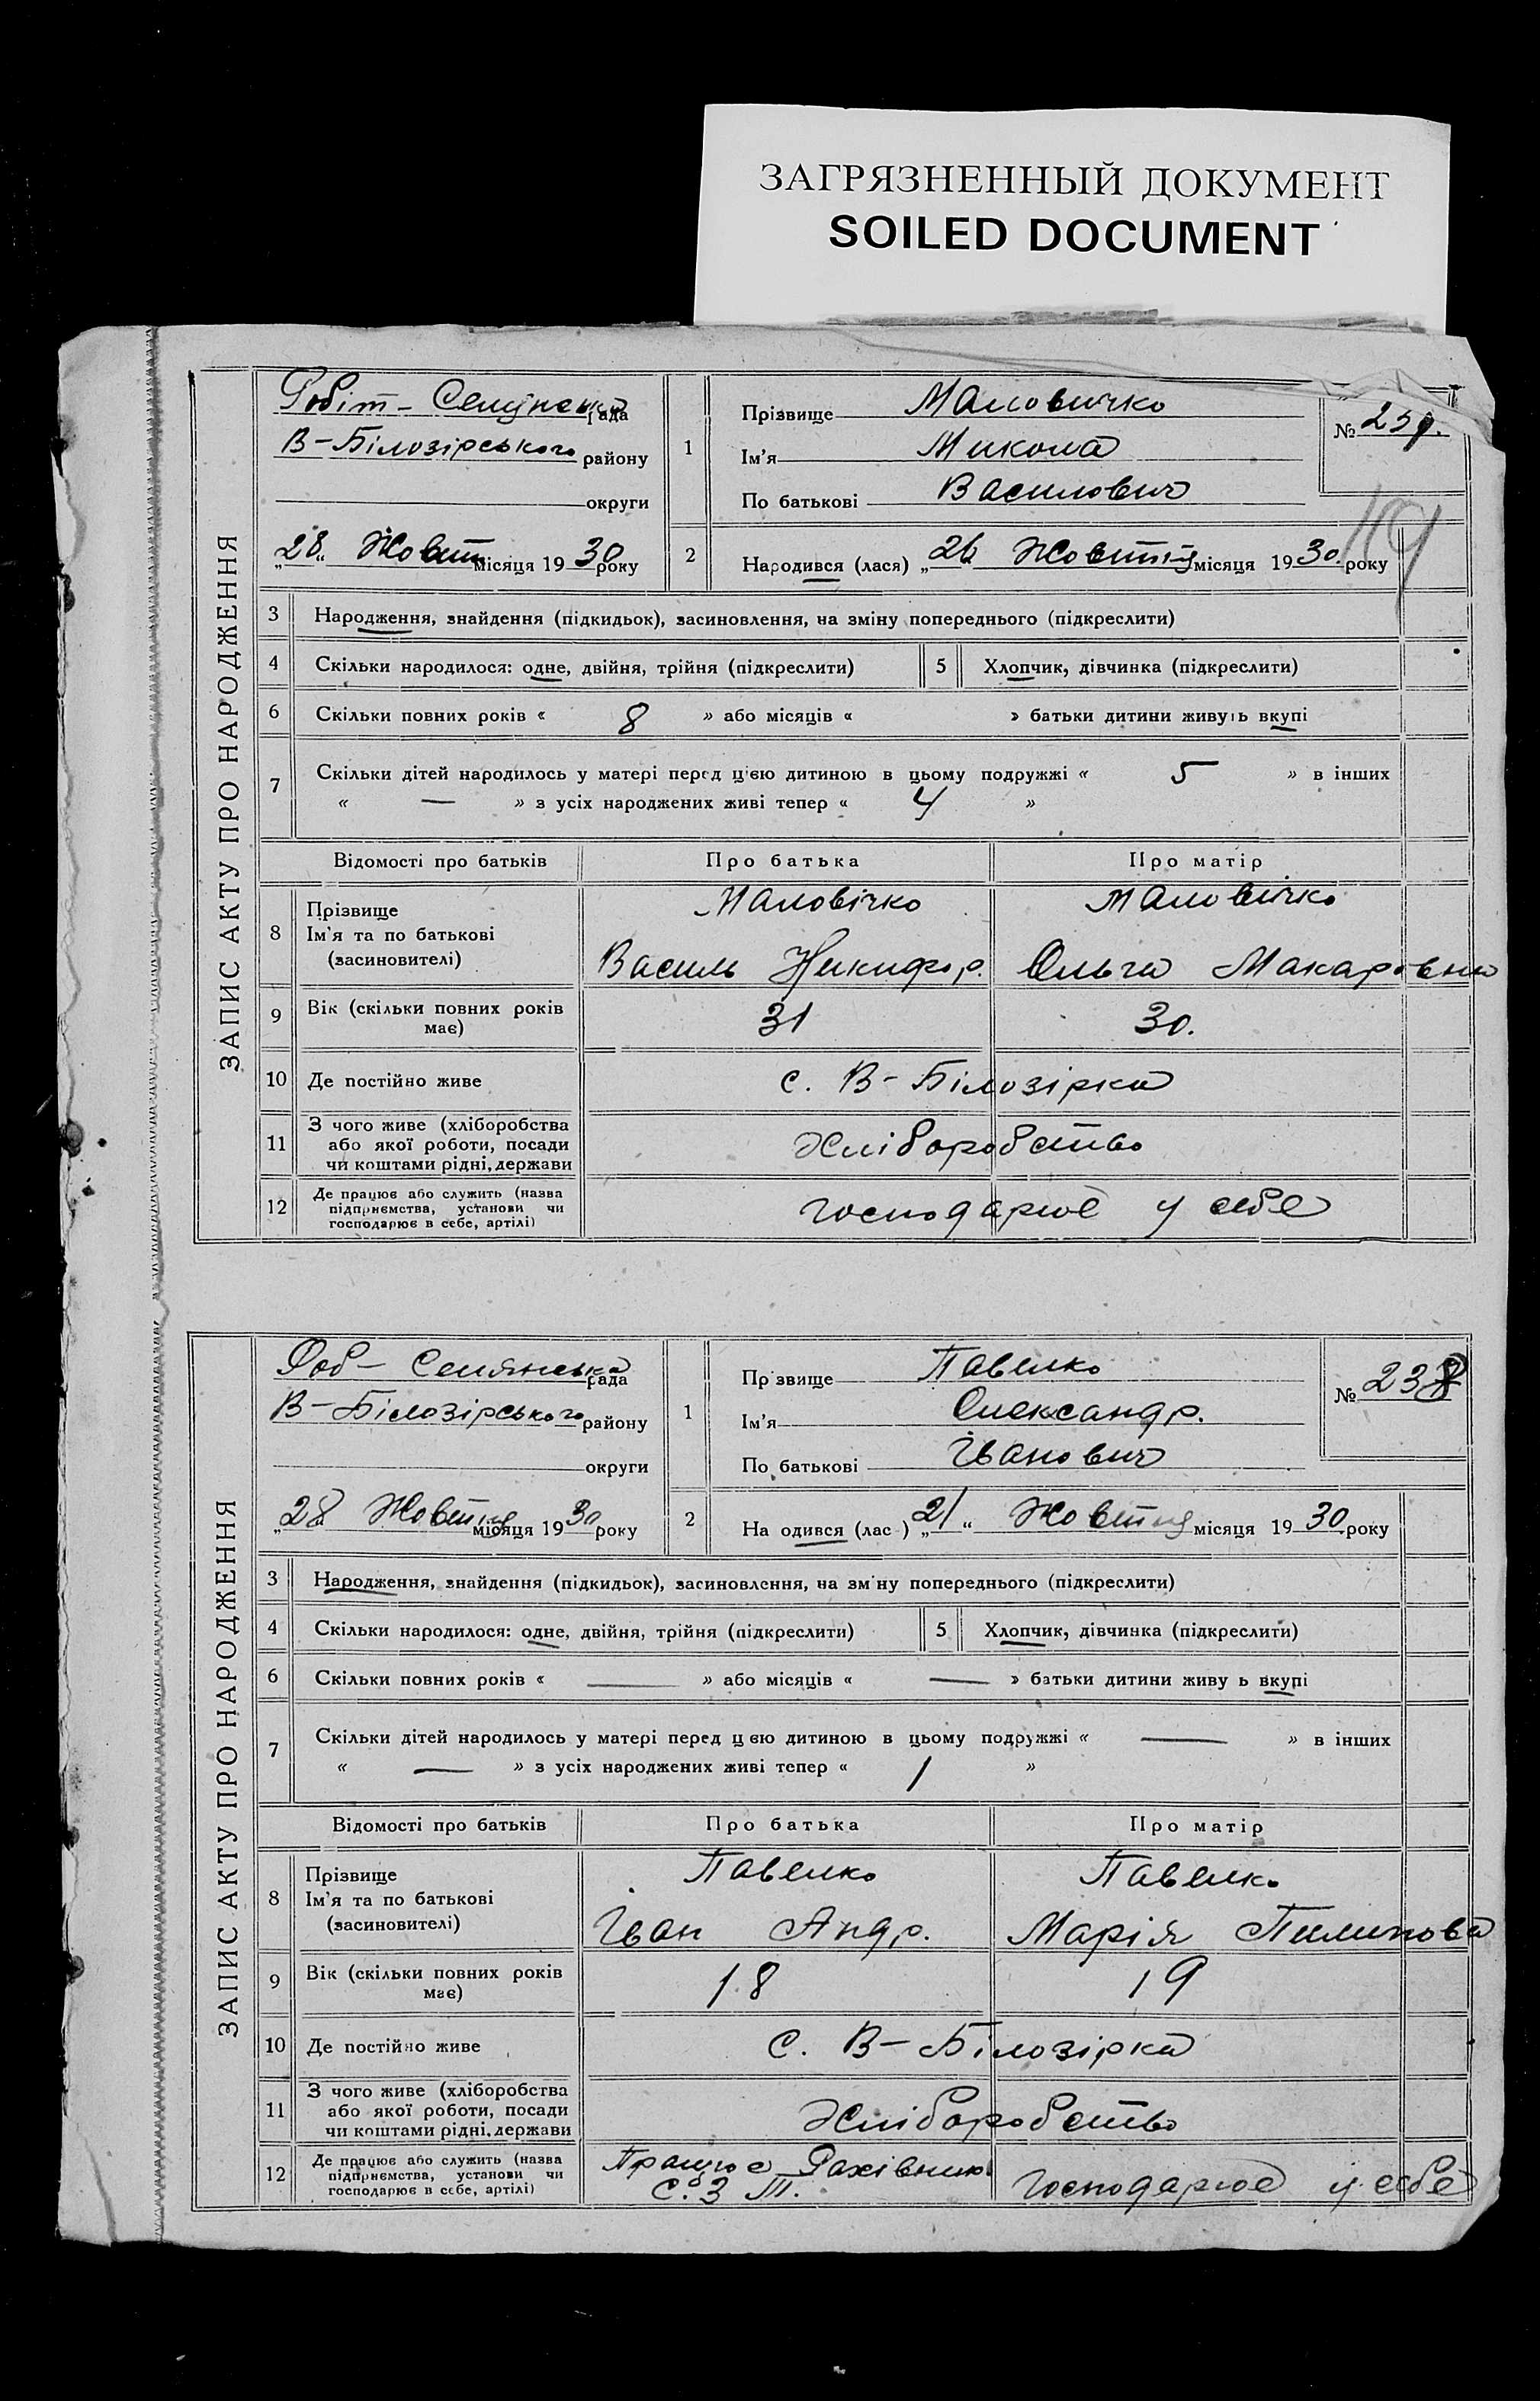 ЗАГРЯЗНЕННЫЙ ДОКУМЕНТ
SOILED DOCUMENT
ЗАПИС АКТУ ПРО НАРОДЖЕННЯ
Робіт - рада
В-Білозірського району
округи
„28“ Жовтн місяця 1930 року
1
Прізвище Маловичко
Ім'я Микола
По батькові Василович
№ 237.
119
2
Народився (лася) „26“ Жовтня місяця 1930. року
3 Народження, знайдення (підкидьок), засиновлення, на зміну попереднього (підкреслити)
4 Скільки народилося: одне, двійня, трійня (підкреслити) 5 Хлопчик, дівчинка (підкреслити)
6 Скільки повних років « 8 » або місяців « » батьки дитини живуть вкупі
7 Скільки дітей народилось у матері перед цією дитиною в цьому подружжі « 5 » в інших
« — » з усіх народжених живі тепер « 4 »
Відомості про батьків Про батька Про матір
8 Прізвище Маловічко Маловичко
Ім'я та по батькові
(засиновителі) Василь Никифор. Ольга Макаровна
9 Вік (скільки повних років має) 31 30.
10 Де постійно живе с. В-Білозірка
11 З чого живе (хліборобства
або якої роботи, посади Хліборобство
чи коштами рідні, держави
12 Де працює або служить (назва
підприємства, установи чи господарює у себе
господарює в себе, артілі)
ЗАПИС АКТУ ПРО НАРОДЖЕННЯ
Роб- Селянська рада
В-Білозірського району
округи
„28“ Жовтня місяця 1930 року
1
Прізвище Павелко
Ім'я Олександр.
По батькові Іванович
№ 238
2
На одився (лас ) „21“ Жовтня місяця 1930 року
3 Народження, знайдення (підкидьок), засиновлення, на зм ну попереднього (підкреслити)
4 Скільки народилося: одне, двійня, трійня (підкреслити) 5 Хлопчик, дівчинка (підкреслити)
6 Скільки повних років « — » або місяців « — » батьки дитини живу ь вкупі
7 Скільки дітей народилось у матері перед цією дитиною в цьому подружжі « — » в інших
« — » з усіх народжених живі тепер « 1 »
Відомості про батьків Про батька Про матір
8 Прізвище Павелко Павелко
Ім'я та по батькові
(засиновителі) Іван Андр. Марія Пилипова
9 Вік (скільки повних років має) 18 19
10 Де постійно живе с. В-Білозірка
11 З чого живе (хліборобства
або якої роботи, посади Хліборобство
чи коштами рідні, держави
12 Де працює або служить (назва Працює Рахівником
підприємства, установи чи С.З Т. господарює у себе
господарює в себе, артілі)